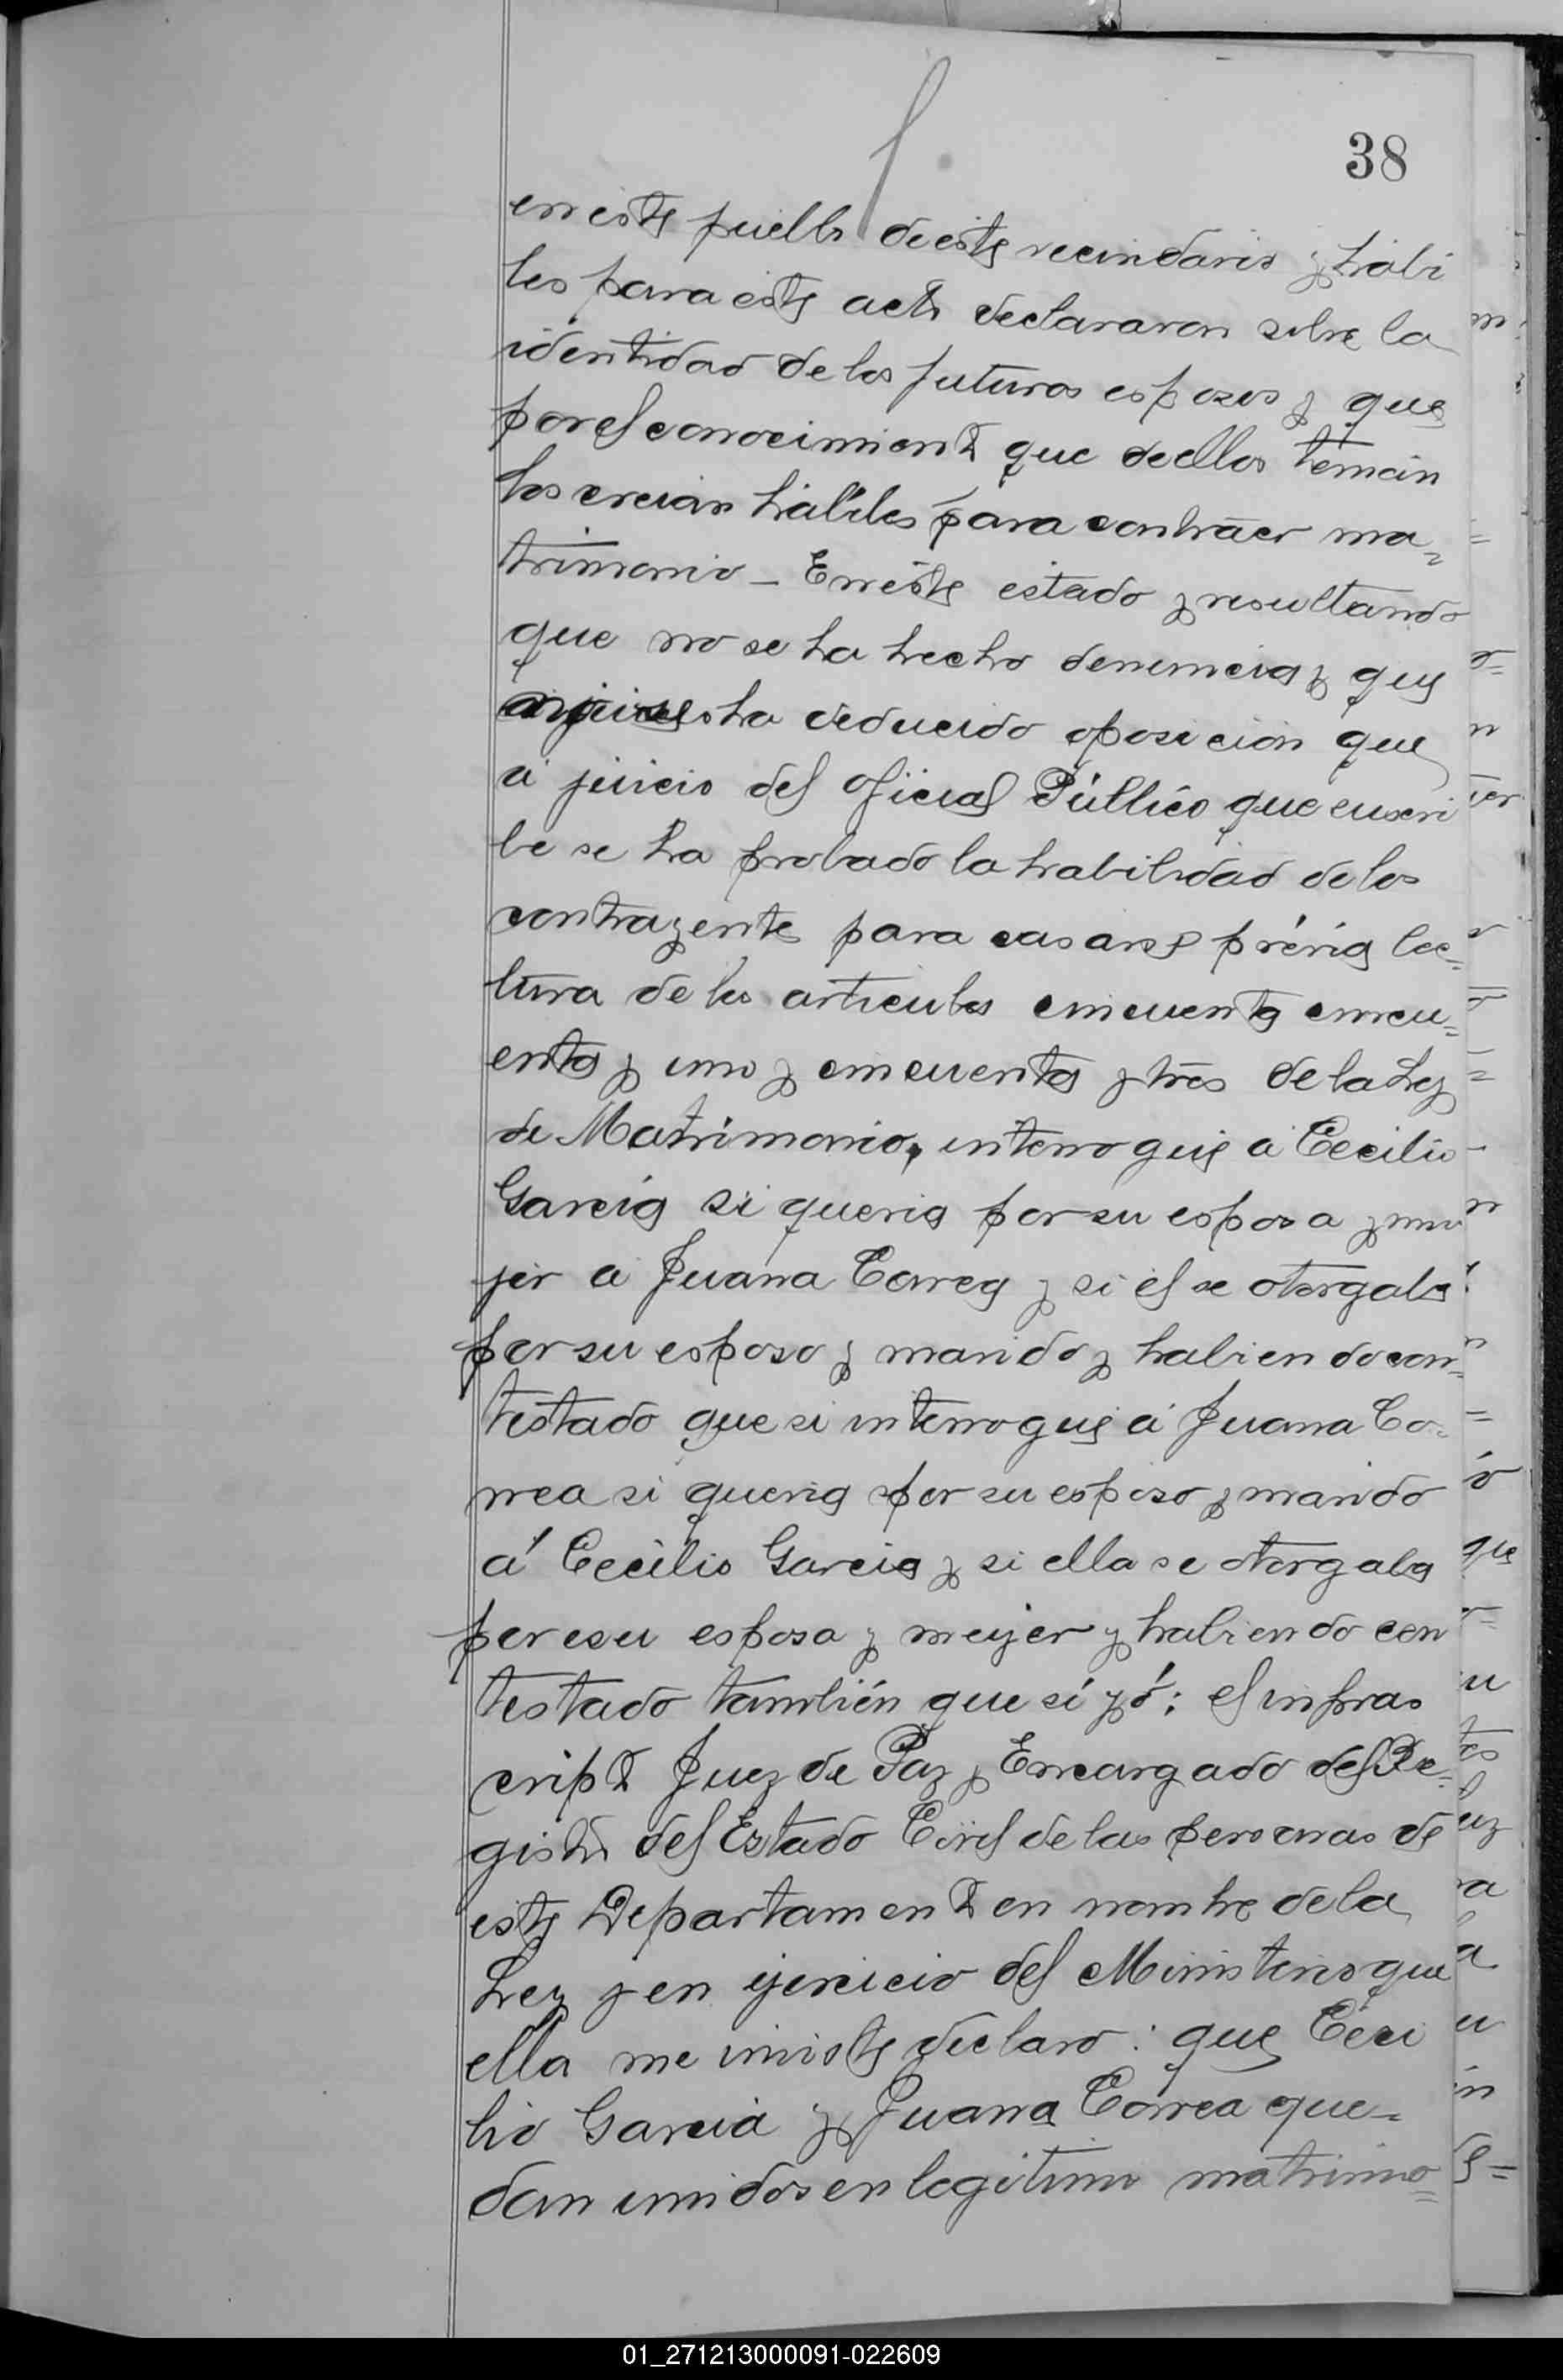 38
en este pueblo de este vecindario y hábi
les para este acto declararon sobre la
identidad de los futuros esposos y que
por el conocimiento que de ellos tenian
los creian hábiles para contraer ma=
trimonio - En este estado y resultando
que no se ha hecho denuncia y que
ha deducido oposición que
a juicio del Oficial Público que suscri
be se ha probado la habilidad de los
contrayente para casarse prévia lec=
tura de los articulos cincuenta cincu=
enta y uno y cincuenta y tres de la Ley
de Matrimonio, interrogué a Cecilio
Garcia si queria por su esposa y mu
jer a Juana Correa y si él se otorgaba
por su esposo y marido y habiendo con=
testado que si interrogué a Juana Co=
rrea si queria por su esposo y marido
á Cecilio Garcia y si ella se otorgaba
por su esposa y mujer y habiendo con
testado también que sí yó: el infras
cripto Juez de Paz y Encargado del Re=
gistro del Estado Civil de las personas de
este Departamento en nombre de la
Ley y en ejercicio del Ministerio que
ella me inviste declaro: que Ceci
lio Garcia y Juana Correa que=
dan unidos en legitimo matrimo=
01_271213000091-022609